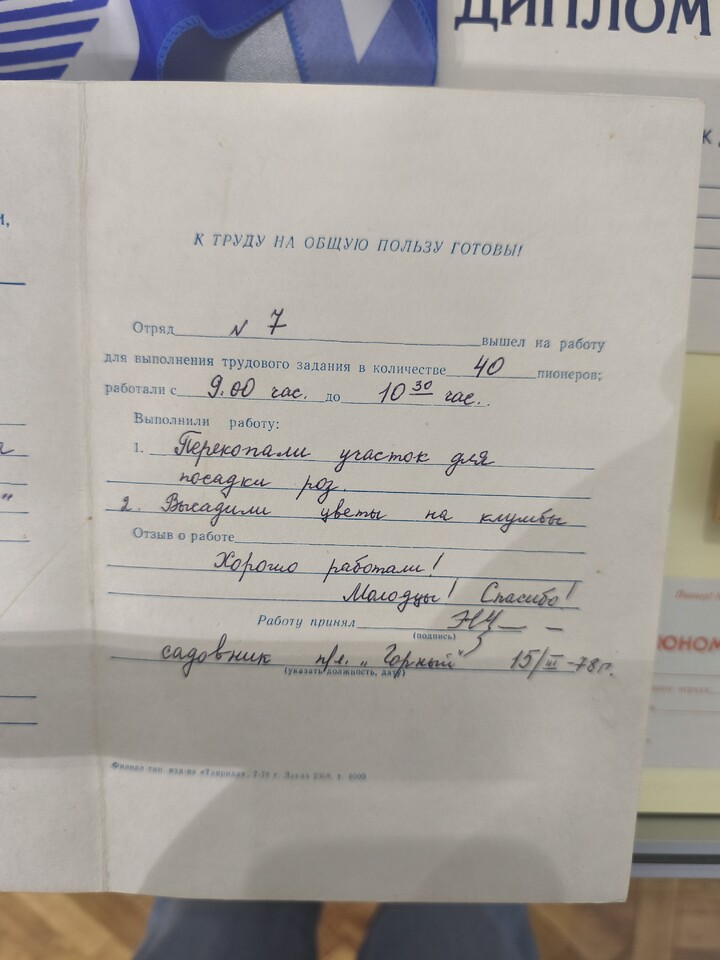 ДИПЛОМ
К ТРУДУ НА ОБЩУЮ ПОЛЬЗУ ГОТОВЫ!
Отряд N 7 вышел на работу
для выполнения трудового задания в количестве 40 пионеров;
работали с 9.00 час. до 10 30 час.
Выполнили работу:
1. Перекопали участок для
посадки роз.
2. Высадили цветы на клумбы
Отзыв о работе
Хорошо работали!
Молодцы! Спасибо!
Работу принял
(подпись)
садовник п/л. „Горный" 15/III-78г.
(указать должность, дату)
Филиал тип. изд-ва «Таврида»,